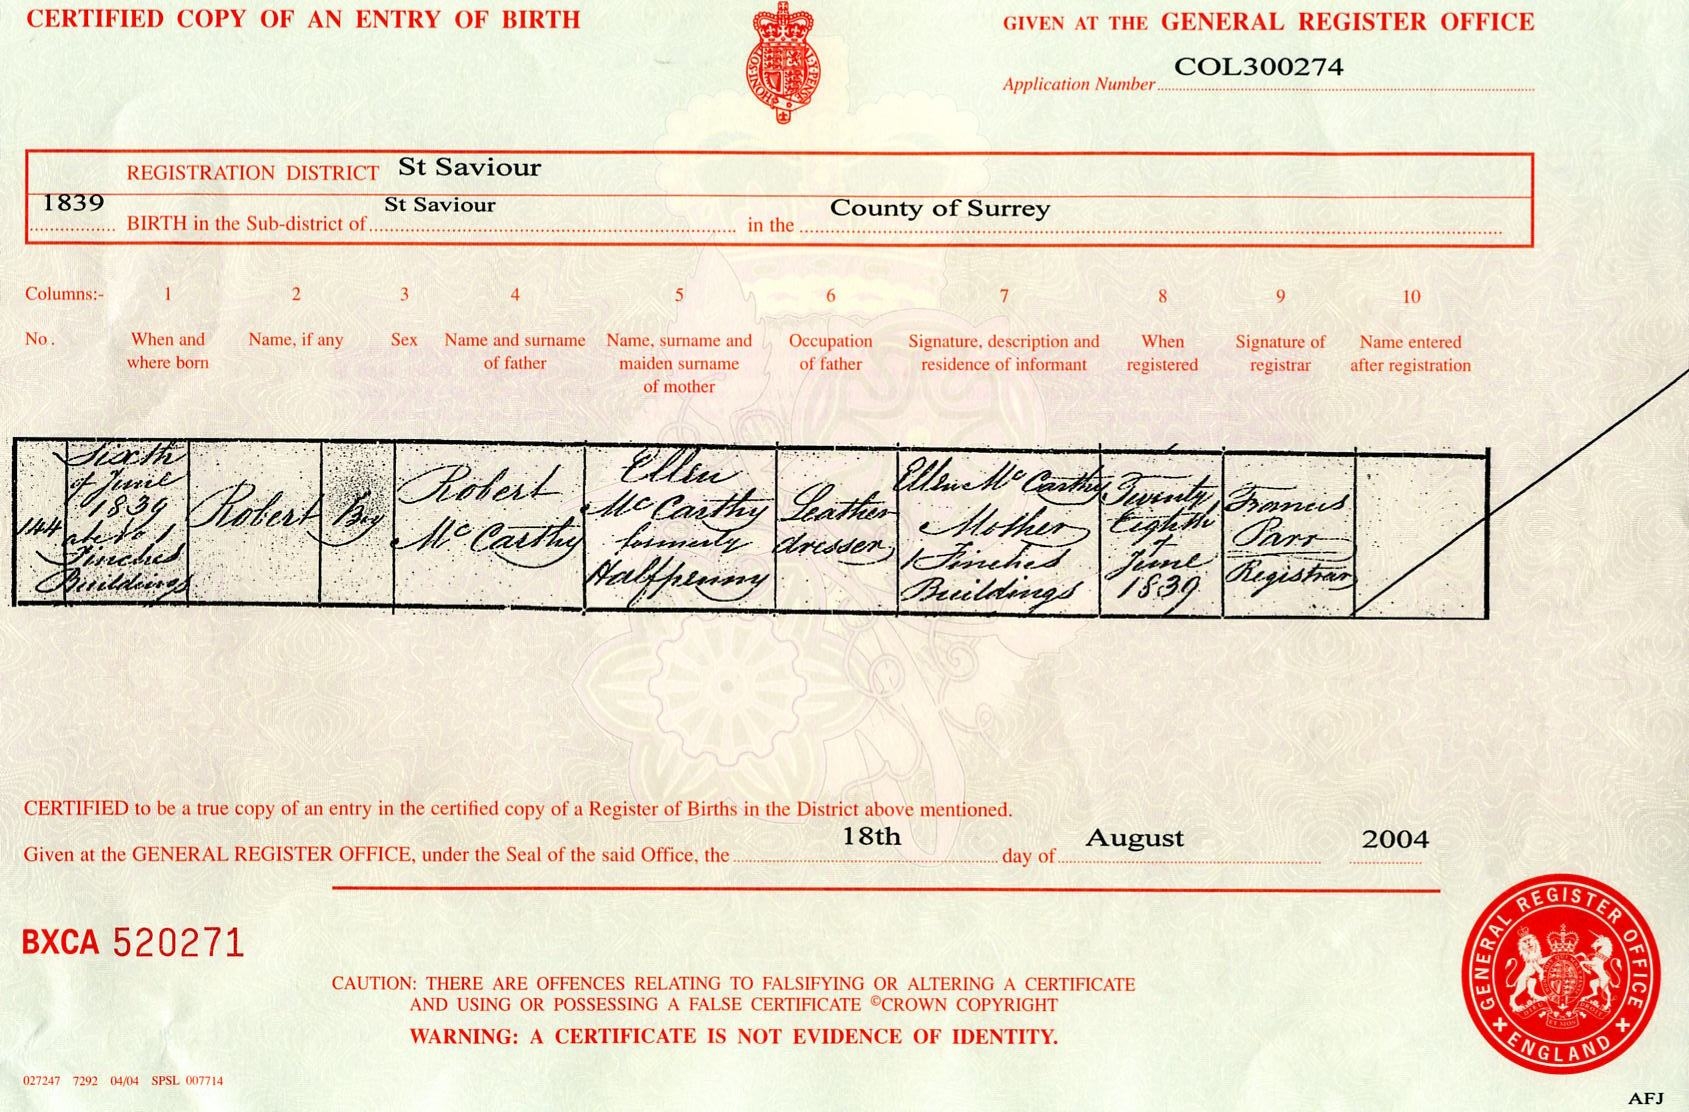 CERTIFIED COPY OF AN ENTRY OF BIRTH
GIVEN AT THE GENERAL REGISTER OFFICE
Application Number COL300274
REGISTRATION DISTRICT St Saviour
1839 BIRTH in the Sub-district of St Saviour in the County of Surrey
Columns:- 1 2 3 4 5 6 7 8 9 10
No. When and where born
Name, if any
Sex
Name and surname of father
Name, surname and maiden surname of mother
Occupation of father
Signature, description and residence of informant
When registered
Signature of registrar
Name entered after registration
144
Sixth
of June
1839
at No 1
Finches
Buildings
Robert
Boy
Robert
Mc Carthy
Ellen
Mc Carthy
formerly
Halfpenny
Leather
dresser
Ellen Mc Carthy
Mother
1 Finches
Buildings
Twenty
Eighth
of
June
1839
Francis
Parr
Registrar
CERTIFIED to be a true copy of an entry in the certified copy of a Register of Births in the District above mentioned.
Given at the GENERAL REGISTER OFFICE, under the Seal of the said Office, the 18th day of August 2004
BXCA 520271
CAUTION: THERE ARE OFFENCES RELATING TO FALSIFYING OR ALTERING A CERTIFICATE
AND USING OR POSSESSING A FALSE CERTIFICATE ©CROWN COPYRIGHT
WARNING: A CERTIFICATE IS NOT EVIDENCE OF IDENTITY.
GENERAL REGISTER OFFICE
ENGLAND
027247 7292 04/04 SPSL 007714
AFJ